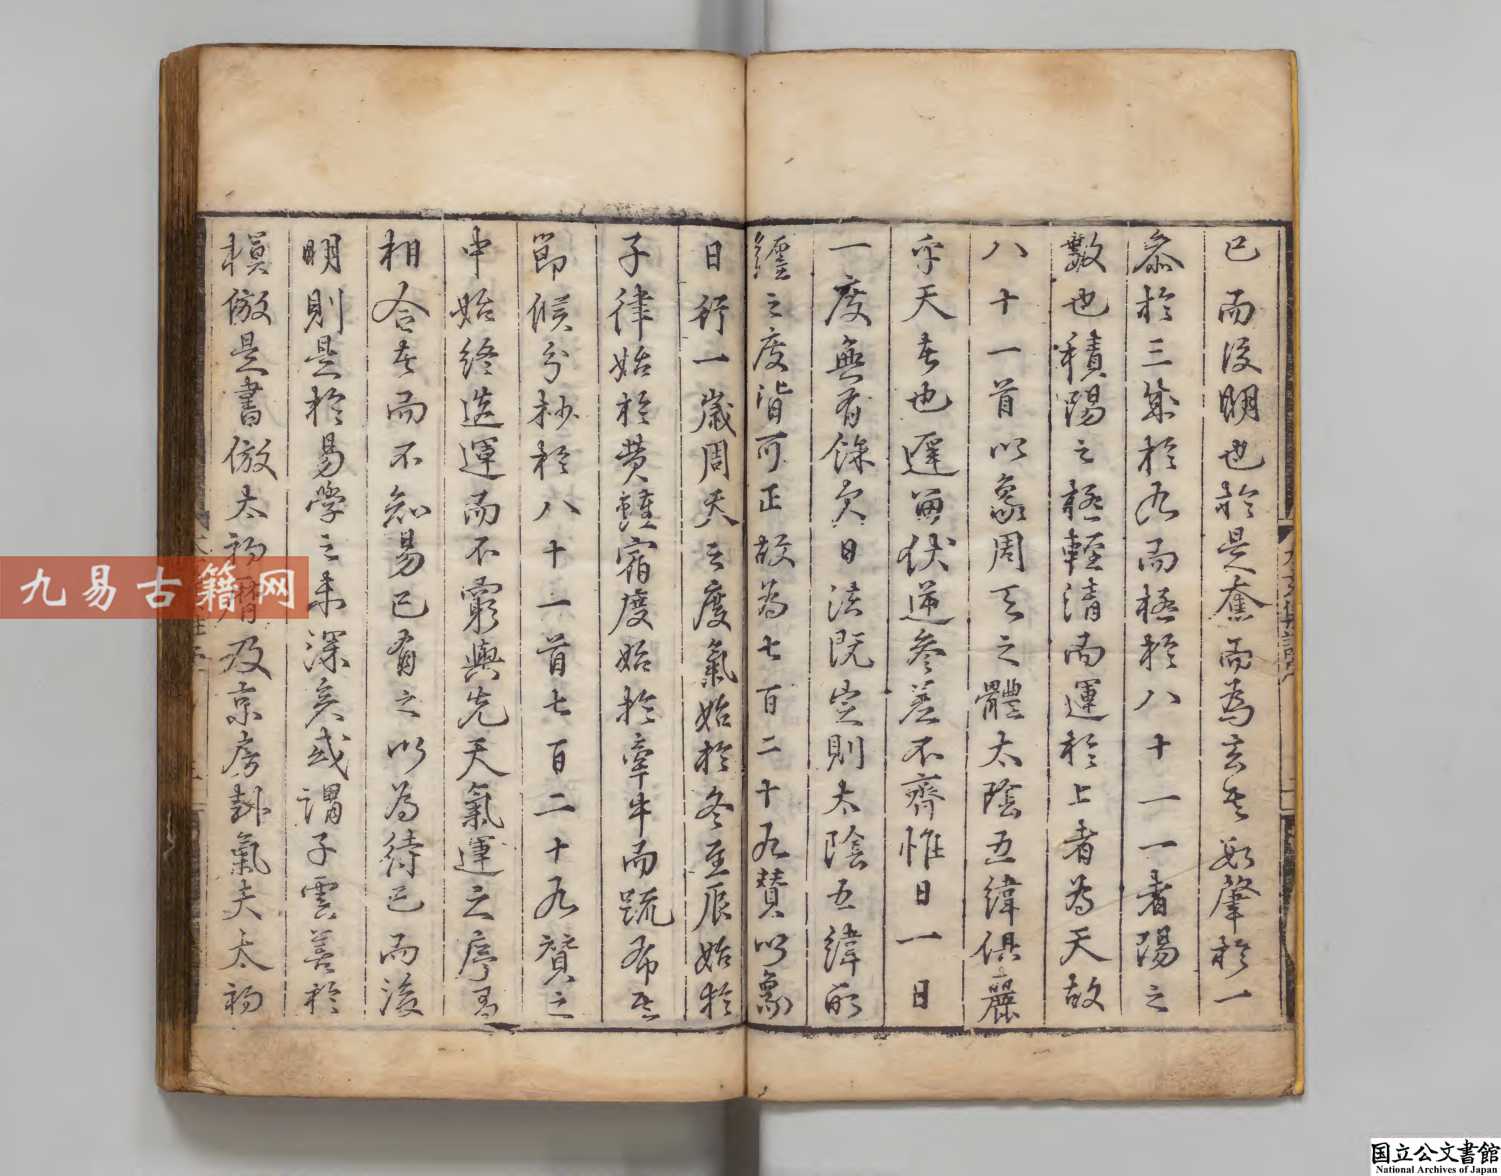 已而後明也於是奮而為玄其數肇於一
叅於三策於九而極於八十一一者陽之
數也積陽之極輕清而運於上者為天故
八十一首以象周天之體太陰五緯俱麗
乎天者也遲留伏逆參差不齊惟日一日
一度無有餘欠日法既定則太陰五緯所
纏之度皆可正故為七百二十九贊以象
日行一歲周天之度氣始於冬至辰始於
子律始於黃鍾宿度始於牽牛而疏布其
節候分杪於八十一首七百二十九贊之
中始終迭運而不窮與先天氣運之序有
相合者而不知易已有之以為待已而後
明則是於易學之未深矣或謂子雲善於
模倣是書倣太初曆及京房卦氣夫太初
九易古籍网
国立公文書館
National Archives of Japan